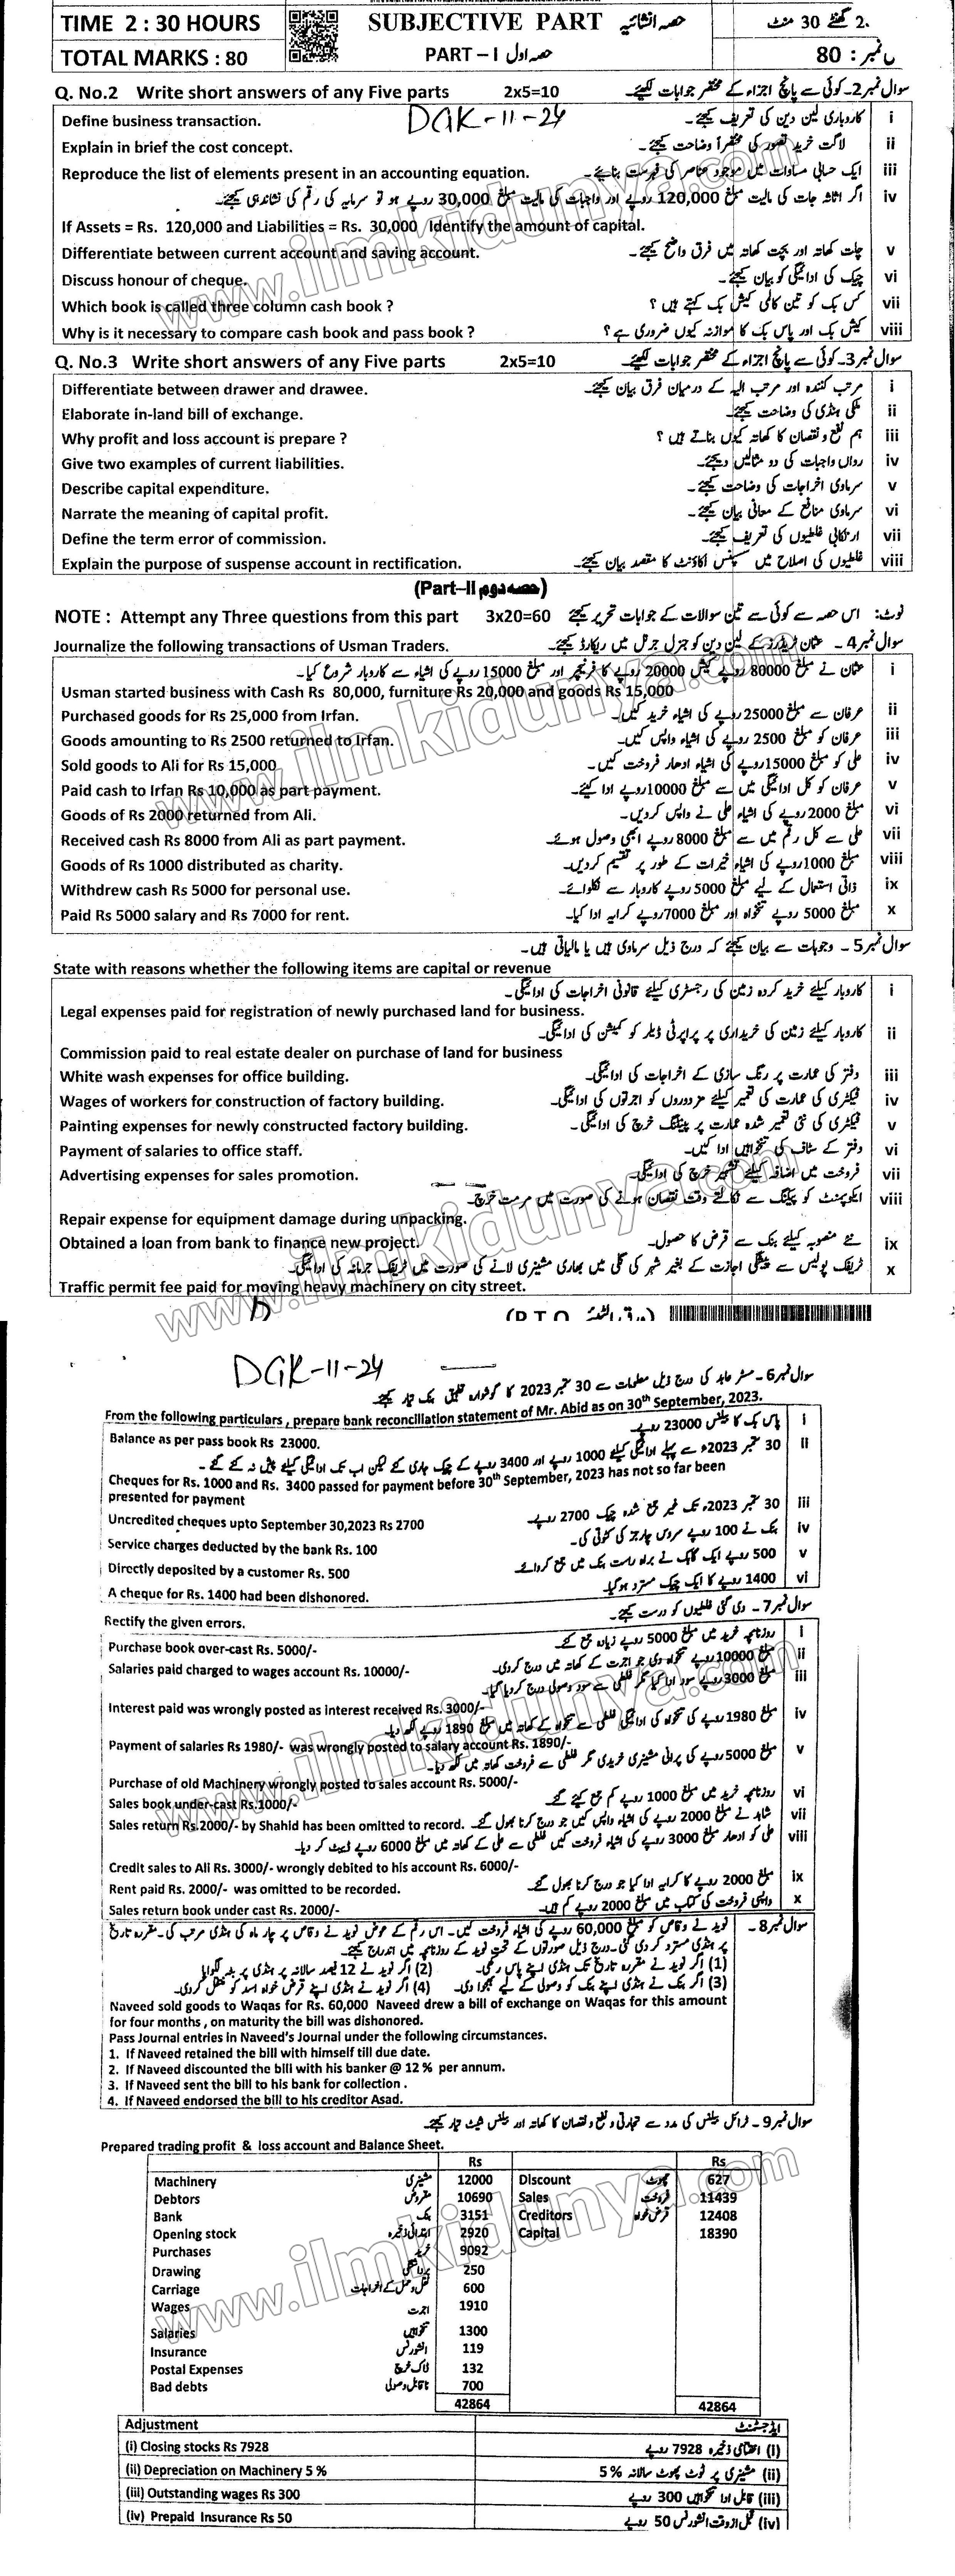 TIME 2 : 30 HOURS SUBJECTIVE PART حصہ انشائیہ 2 گھنٹے 30 منٹ
TOTAL MARKS : 80 PART – I حصہ اول نمبر : 80
Q. No.2 Write short answers of any Five parts 2x5=10 سوال نمبر 2- کوئی سے پانچ اجزاء کے مختصر جوابات لکھیئے۔
DGK-11-24
Define business transaction. کاروباری لین دین کی تعریف کیجئے۔ i
Explain in brief the cost concept. لاگت خرید تصور کی مختصراً وضاحت کیجئے۔ ii
Reproduce the list of elements present in an accounting equation. ایک حسابی مساوات میں موجود عناصر کی فہرست بنایئے۔ iii
اگر اثاثہ جات کی مالیت مبلغ 120,000 روپے اور واجبات کی مالیت مبلغ 30,000 روپے ہو تو سرمایہ کی رقم کی نشاندہی کیجئے۔ iv
If Assets = Rs. 120,000 and Liabilities = Rs. 30,000 Identify the amount of capital.
Differentiate between current account and saving account. چلت کھاتہ اور بچت کھاتہ میں فرق واضح کیجئے۔ v
Discuss honour of cheque. چیک کی ادائیگی کو بیان کیجئے۔ vi
Which book is called three column cash book ? کس بک کو تین کالمی کیش بک کہتے ہیں ؟ vii
Why is it necessary to compare cash book and pass book ? کیش بک اور پاس بک کا موازنہ کیوں ضروری ہے ؟ viii
Q. No.3 Write short answers of any Five parts 2x5=10 سوال نمبر 3- کوئی سے پانچ اجزاء کے مختصر جوابات لکھیئے۔
Differentiate between drawer and drawee. مرتب کنندہ اور مرتب الیہ کے درمیان فرق بیان کیجئے۔ i
Elaborate in-land bill of exchange. ملکی ہنڈی کی وضاحت کیجئے۔ ii
Why profit and loss account is prepare ? ہم نفع و نقصان کا کھاتہ کیوں بناتے ہیں ؟ iii
Give two examples of current liabilities. رواں واجبات کی دو مثالیں دیجئے۔ iv
Describe capital expenditure. سرمادی اخراجات کی وضاحت کیجئے۔ v
Narrate the meaning of capital profit. سرمادی منافع کے معانی بیان کیجئے۔ vi
Define the term error of commission. ارتکابی غلطیوں کی تعریف کیجئے۔ vii
Explain the purpose of suspense account in rectification. غلطیوں کی اصلاح میں سسپنس اکاؤنٹ کا مقصد بیان کیجئے۔ viii
(Part–II حصہ دوم)
NOTE : Attempt any Three questions from this part 3x20=60 نوٹ: اس حصہ سے کوئی سے تین سوالات کے جوابات تحریر کیجئے
Journalize the following transactions of Usman Traders. سوال نمبر 4 - عثمان ٹریڈرز کے لین دین کو جنرل جرنل میں ریکارڈ کیجئے۔
عثمان نے مبلغ 80000 روپے کیش 20000 روپے کا فرنیچر اور مبلغ 15000 روپے کی اشیاء سے کاروبار شروع کیا۔ i
Usman started business with Cash Rs 80,000, furniture Rs 20,000 and goods Rs 15,000
Purchased goods for Rs 25,000 from Irfan. عرفان سے مبلغ 25000 روپے کی اشیاء خرید کیں۔ ii
Goods amounting to Rs 2500 returned to Irfan. عرفان کو مبلغ 2500 روپے کی اشیاء واپس کیں۔ iii
Sold goods to Ali for Rs 15,000 علی کو مبلغ 15000 روپے کی اشیاء ادھار فروخت کیں۔ iv
Paid cash to Irfan Rs 10,000 as part payment. عرفان کو کل ادائیگی میں سے مبلغ 10000 روپے ادا کیئے۔ v
Goods of Rs 2000 returned from Ali. مبلغ 2000 روپے کی اشیاء علی نے واپس کردیں۔ vi
Received cash Rs 8000 from Ali as part payment. علی سے کل رقم میں سے مبلغ 8000 روپے ابھی وصول ہوئے۔ vii
Goods of Rs 1000 distributed as charity. مبلغ 1000 روپے کی اشیاء خیرات کے طور پر تقسیم کردیں۔ viii
Withdrew cash Rs 5000 for personal use. ذاتی استعمال کے لیے مبلغ 5000 روپے کاروبار سے نکلوائے۔ ix
Paid Rs 5000 salary and Rs 7000 for rent. مبلغ 5000 روپے تنخواہ اور مبلغ 7000 روپے کرایہ ادا کیا۔ x
سوال نمبر 5 - وجوہات سے بیان کیجئے کہ درج ذیل سرمادی ہیں یا مالیاتی ہیں۔
State with reasons whether the following items are capital or revenue
کاروبار کیلئے خرید کردہ زمین کی رجسٹری کیلئے قانونی اخراجات کی ادائیگی۔ i
Legal expenses paid for registration of newly purchased land for business.
کاروبار کیلئے زمین کی خریداری پر پراپرٹی ڈیلر کو کمیشن کی ادائیگی۔ ii
Commission paid to real estate dealer on purchase of land for business
White wash expenses for office building. دفتر کی عمارت پر رنگ سازی کے اخراجات کی ادائیگی۔ iii
Wages of workers for construction of factory building. فیکٹری کی عمارت کی تعمیر کیلئے مزدوروں کو اجرتوں کی ادائیگی۔ iv
Painting expenses for newly constructed factory building. فیکٹری کی نئی تعمیر شدہ عمارت پر پینٹنگ خرچ کی ادائیگی۔ v
Payment of salaries to office staff. دفتر کے سٹاف کی تنخواہیں ادا کیں۔ vi
Advertising expenses for sales promotion. فروخت میں اضافہ کیلئے تشہیر خرچ کی ادائیگی۔ vii
ایکوپمنٹ کو پیکنگ سے نکالتے وقت نقصان ہونے کی صورت میں مرمت خرچ۔ viii
Repair expense for equipment damage during unpacking.
Obtained a loan from bank to finance new project. نئے منصوبہ کیلئے بنک سے قرض کا حصول۔ ix
ٹریفک پولیس سے پیشگی اجازت کے بغیر شہر کی گلی میں بھاری مشینری لانے کی صورت میں ٹریفک جرمانہ کی ادائیگی۔ x
Traffic permit fee paid for moving heavy machinery on city street.
(P.T.O ورق الٹیئے)
DGK-11-24
سوال نمبر 6 - مسٹر عابد کی درج ذیل معلومات سے 30 ستمبر 2023 کا گوشوارہ تطبیق بنک تیار کیجئے۔
From the following particulars , prepare bank reconciliation statement of Mr. Abid as on 30th September, 2023.
پاس بک کا بیلنس 23000 روپے i
Balance as per pass book Rs 23000.
30 ستمبر 2023ء سے پہلے ادائیگی کیلئے 1000 روپے اور 3400 روپے کے چیک جاری کئے گئے لیکن اب تک ادائیگی کیلئے پیش نہ کئے گئے۔ ii
Cheques for Rs. 1000 and Rs. 3400 passed for payment before 30th September, 2023 has not so far been
presented for payment
Uncredited cheques upto September 30,2023 Rs 2700 30 ستمبر 2023ء تک غیر جمع شدہ چیک 2700 روپے۔ iii
Service charges deducted by the bank Rs. 100 بنک نے 100 روپے سروس چارجز کی کٹوتی کی۔ iv
Directly deposited by a customer Rs. 500 500 روپے ایک گاہک نے براہ راست بنک میں جمع کروائے۔ v
A cheque for Rs. 1400 had been dishonored. 1400 روپے کا ایک چیک مسترد ہوگیا۔ vi
Rectify the given errors. سوال نمبر 7- دی گئی غلطیوں کو درست کیجئے۔
Purchase book over-cast Rs. 5000/- روزنامچہ خرید میں مبلغ 5000 روپے زیادہ جمع کئے گئے۔ i
Salaries paid charged to wages account Rs. 10000/- مبلغ 10000 روپے تنخواہ دی جو اجرت کے کھاتہ میں درج کردی۔ ii
مبلغ 3000 روپے سود ادا کیا مگر غلطی سے سود وصولی درج کردیا گیا۔ iii
Interest paid was wrongly posted as interest received Rs. 3000/-
مبلغ 1980 روپے کی تنخواہ کی ادائیگی غلطی سے تنخواہ کے کھاتہ میں مبلغ 1890 روپے لکھ دیا۔ iv
Payment of salaries Rs 1980/- was wrongly posted to salary account Rs. 1890/-
مبلغ 5000 روپے کی پرانی مشینری خریدی مگر غلطی سے فروخت کھاتہ میں لکھ دیا۔ v
Purchase of old Machinery wrongly posted to sales account Rs. 5000/-
Sales book under-cast Rs.1000/- روزنامچہ خرید میں مبلغ 1000 روپے کم جمع کیئے گئے vi
Sales return Rs.2000/- by Shahid has been omitted to record. شاہد نے مبلغ 2000 روپے کی اشیاء واپس کیں جو درج کرنا بھول گئے۔ vii
علی کو ادھار مبلغ 3000 روپے کی اشیاء فروخت کیں غلطی سے علی کے کھاتہ میں مبلغ 6000 روپے ڈیبٹ کر دیا۔ viii
Credit sales to Ali Rs. 3000/- wrongly debited to his account Rs. 6000/-
Rent paid Rs. 2000/- was omitted to be recorded. مبلغ 2000 روپے کا کرایہ ادا کیا جو درج کرنا بھول گئے۔ ix
Sales return book under cast Rs. 2000/- واپسی فروخت کی کتاب میں مبلغ 2000 روپے کم ہیں۔ x
سوال نمبر 8- نوید نے وقاص کو مبلغ 60,000 روپے کی اشیاء فروخت کیں۔ اس رقم کے عوض نوید نے وقاص پر چار ماہ کی ہنڈی مرتب کی۔ مقررہ تاریخ
پر ہنڈی مسترد کر دی گئی۔ درج ذیل صورتوں کے تحت نوید کے روزنامچہ میں اندراج کیجئے۔
(1) اگر نوید نے مقررہ تاریخ تک ہنڈی اپنے پاس رکھی۔ (2) اگر نوید نے 12 فیصد سالانہ پر ہنڈی پر بٹہ لگوایا
(3) اگر بنک نے ہنڈی اپنے بنک کو وصولی کے لیے بھجوا دی۔ (4) اگر نوید نے ہنڈی اپنے قرض خواہ اسد کو منتقل کردی۔
Naveed sold goods to Waqas for Rs. 60,000 Naveed drew a bill of exchange on Waqas for this amount
for four months , on maturity the bill was dishonored.
Pass Journal entries in Naveed's Journal under the following circumstances.
1. If Naveed retained the bill with himself till due date.
2. If Naveed discounted the bill with his banker @ 12 % per annum.
3. If Naveed sent the bill to his bank for collection .
4. If Naveed endorsed the bill to his creditor Asad.
سوال نمبر 9- ٹرائل بیلنس کی مدد سے تجارتی و نفع و نقصان کا کھاتہ اور بیلنس شیٹ تیار کیجئے۔
Prepared trading profit & loss account and Balance Sheet.
Rs Rs
Machinery مشینری 12000 Discount چھوٹ 627
Debtors مقروض 10690 Sales فروخت 11439
Bank بنک 3151 Creditors قرض خواہ 12408
Opening stock ابتدائی ذخیرہ 2920 Capital 18390
Purchases خرید 9092
Drawing 250
Carriage نقل و حمل کے اخراجات 600
Wages اجرت 1910
Salaries تنخواہیں 1300
Insurance انشورنس 119
Postal Expenses ڈاک خرچ 132
Bad debts ناقابل وصولی 700
42864 42864
Adjustment ایڈجسٹمنٹ
(i) Closing stocks Rs 7928 (i) اختتامی ذخیرہ 7928 روپے
(ii) Depreciation on Machinery 5 % (ii) مشینری پر ٹوٹ پھوٹ سالانہ 5 %
(iii) Outstanding wages Rs 300 (iii) قابل ادا تنخواہیں 300 روپے
(iv) Prepaid Insurance Rs 50 (iv) قبل از وقت انشورنس 50 روپے
www.ilmkidunya.com
www.ilmkidunya.com
www.ilmkidunya.com
www.ilmkidunya.com
www.ilmkidunya.com